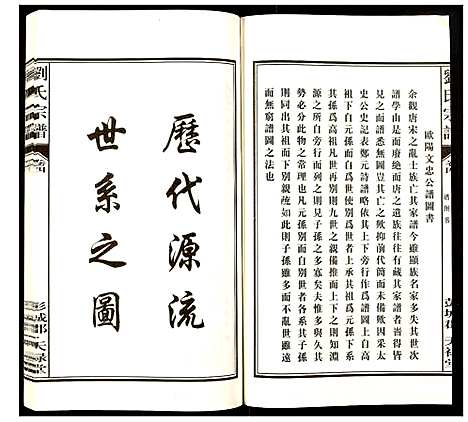 歐陽文忠公譜圖書
余觀唐宋之亂士族亡其家譜今雖顯族名家多失其世次
譜學由是而廢絶而唐之遺族往往有藏其家譜者吾得皆
見之而譜悉無豈其亡之歟抑前代簡而未備歟因采太
史公史記表鄭元詩譜略依其上下旁行作爲譜圖上自高
祖下自元孫而別自爲世者上承其祖爲元孫下系
其孫爲高祖凡世再別而九族之親備推而上下之則知
源之所自旁行而列之則見子孫之多寡矣夫惟多與久其
勢必分此物之常理也凡元孫別而自別爲世者各繫其
則同出其祖而下別親疏如此則子孫雖多而不亂世雖遠
而無窮譜圖之法也
劉氏宗譜
彭城郡 天祿堂
歷代源流
世系之圖
劉氏宗譜
彭城郡 天祿堂